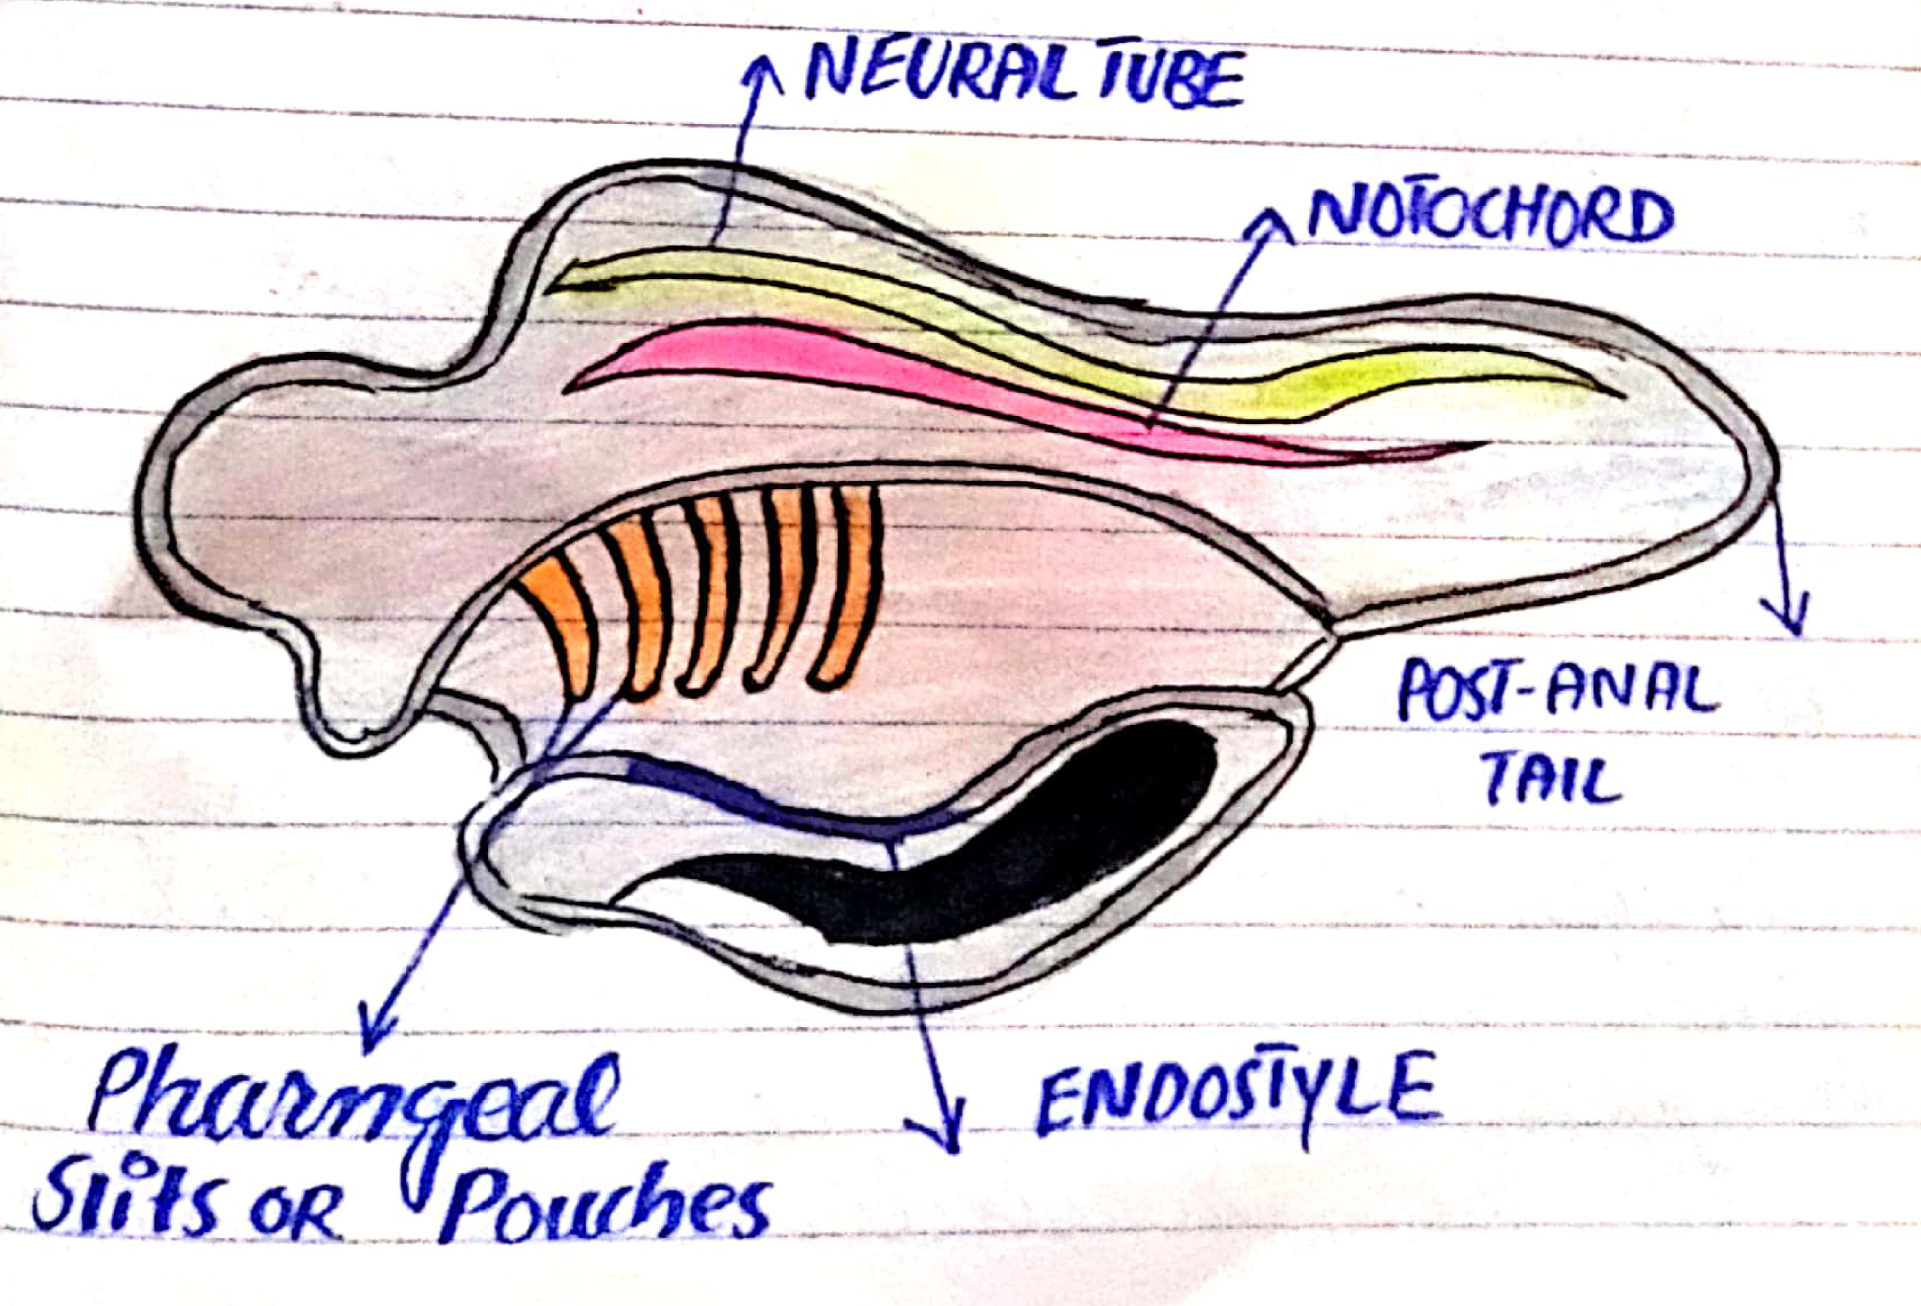 NEURAL TUBE
NOTOCHORD
POST-ANAL
TAIL
ENDOSTYLE
Pharngeal
Slits OR Pouches